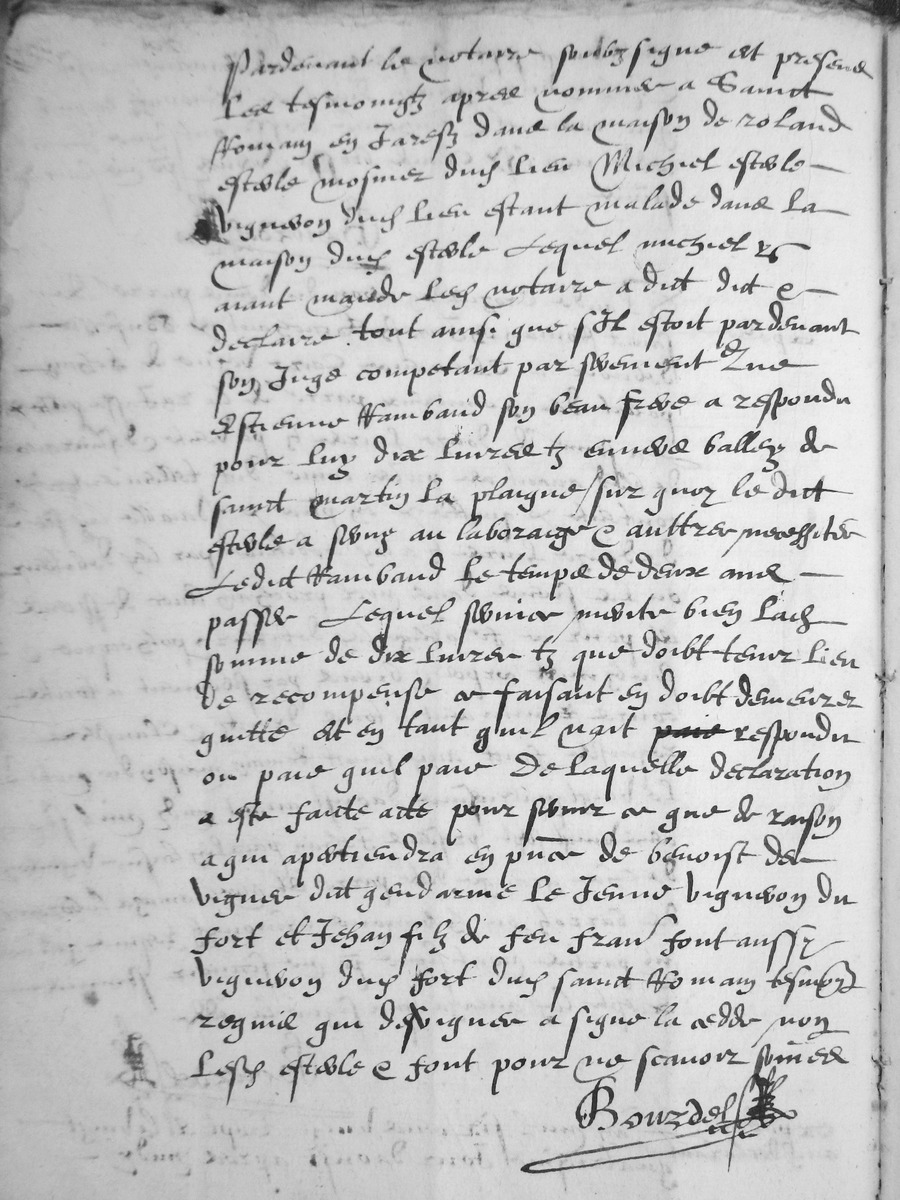 Pardevant le notaire soubz signe et presens
les tesmoingtz apres nommes a Sainct
Romain en Jaresz dans la maison de roland
estesle mosnier dud lieu Michiel estesle
vigneron dud lieu estant malade dans la
maison dud estesle Lequel michiel
aiant mande led notaire a dict dit &
declaire tout ainsi que sIl estoit pardevant
son Juge competant par serement Que
Estienne Rambaud son beau frere a respondu
pour luy dix livres tz envers ballez de
sainct martin la plaigne / sur quoy le dict
estesle a servy au laboraige & aultres necessites
Ledict Rambaud le temps de deux ans
passes Lequel service merite bien lad
somme de dix livres tz que doibt tenir lieu
de recompense ce faisant en doibt demeurer
quitte et en tant quil nait paie respondu
ou paie quil paie De laquelle declaration
a este faicte acte pour servir ce que de raison
a qui apertiendra en pnce de benoist des
vignes dit gendarme le Jeune vigneron du
fort et Jehan filz de feu fran font aussy
vigneron dud fort dud sainct Romain tesmoingz
requis qui desvignes a signe la cedde non
lesd estesle & font pour ne scavoir sommes
Bourdel